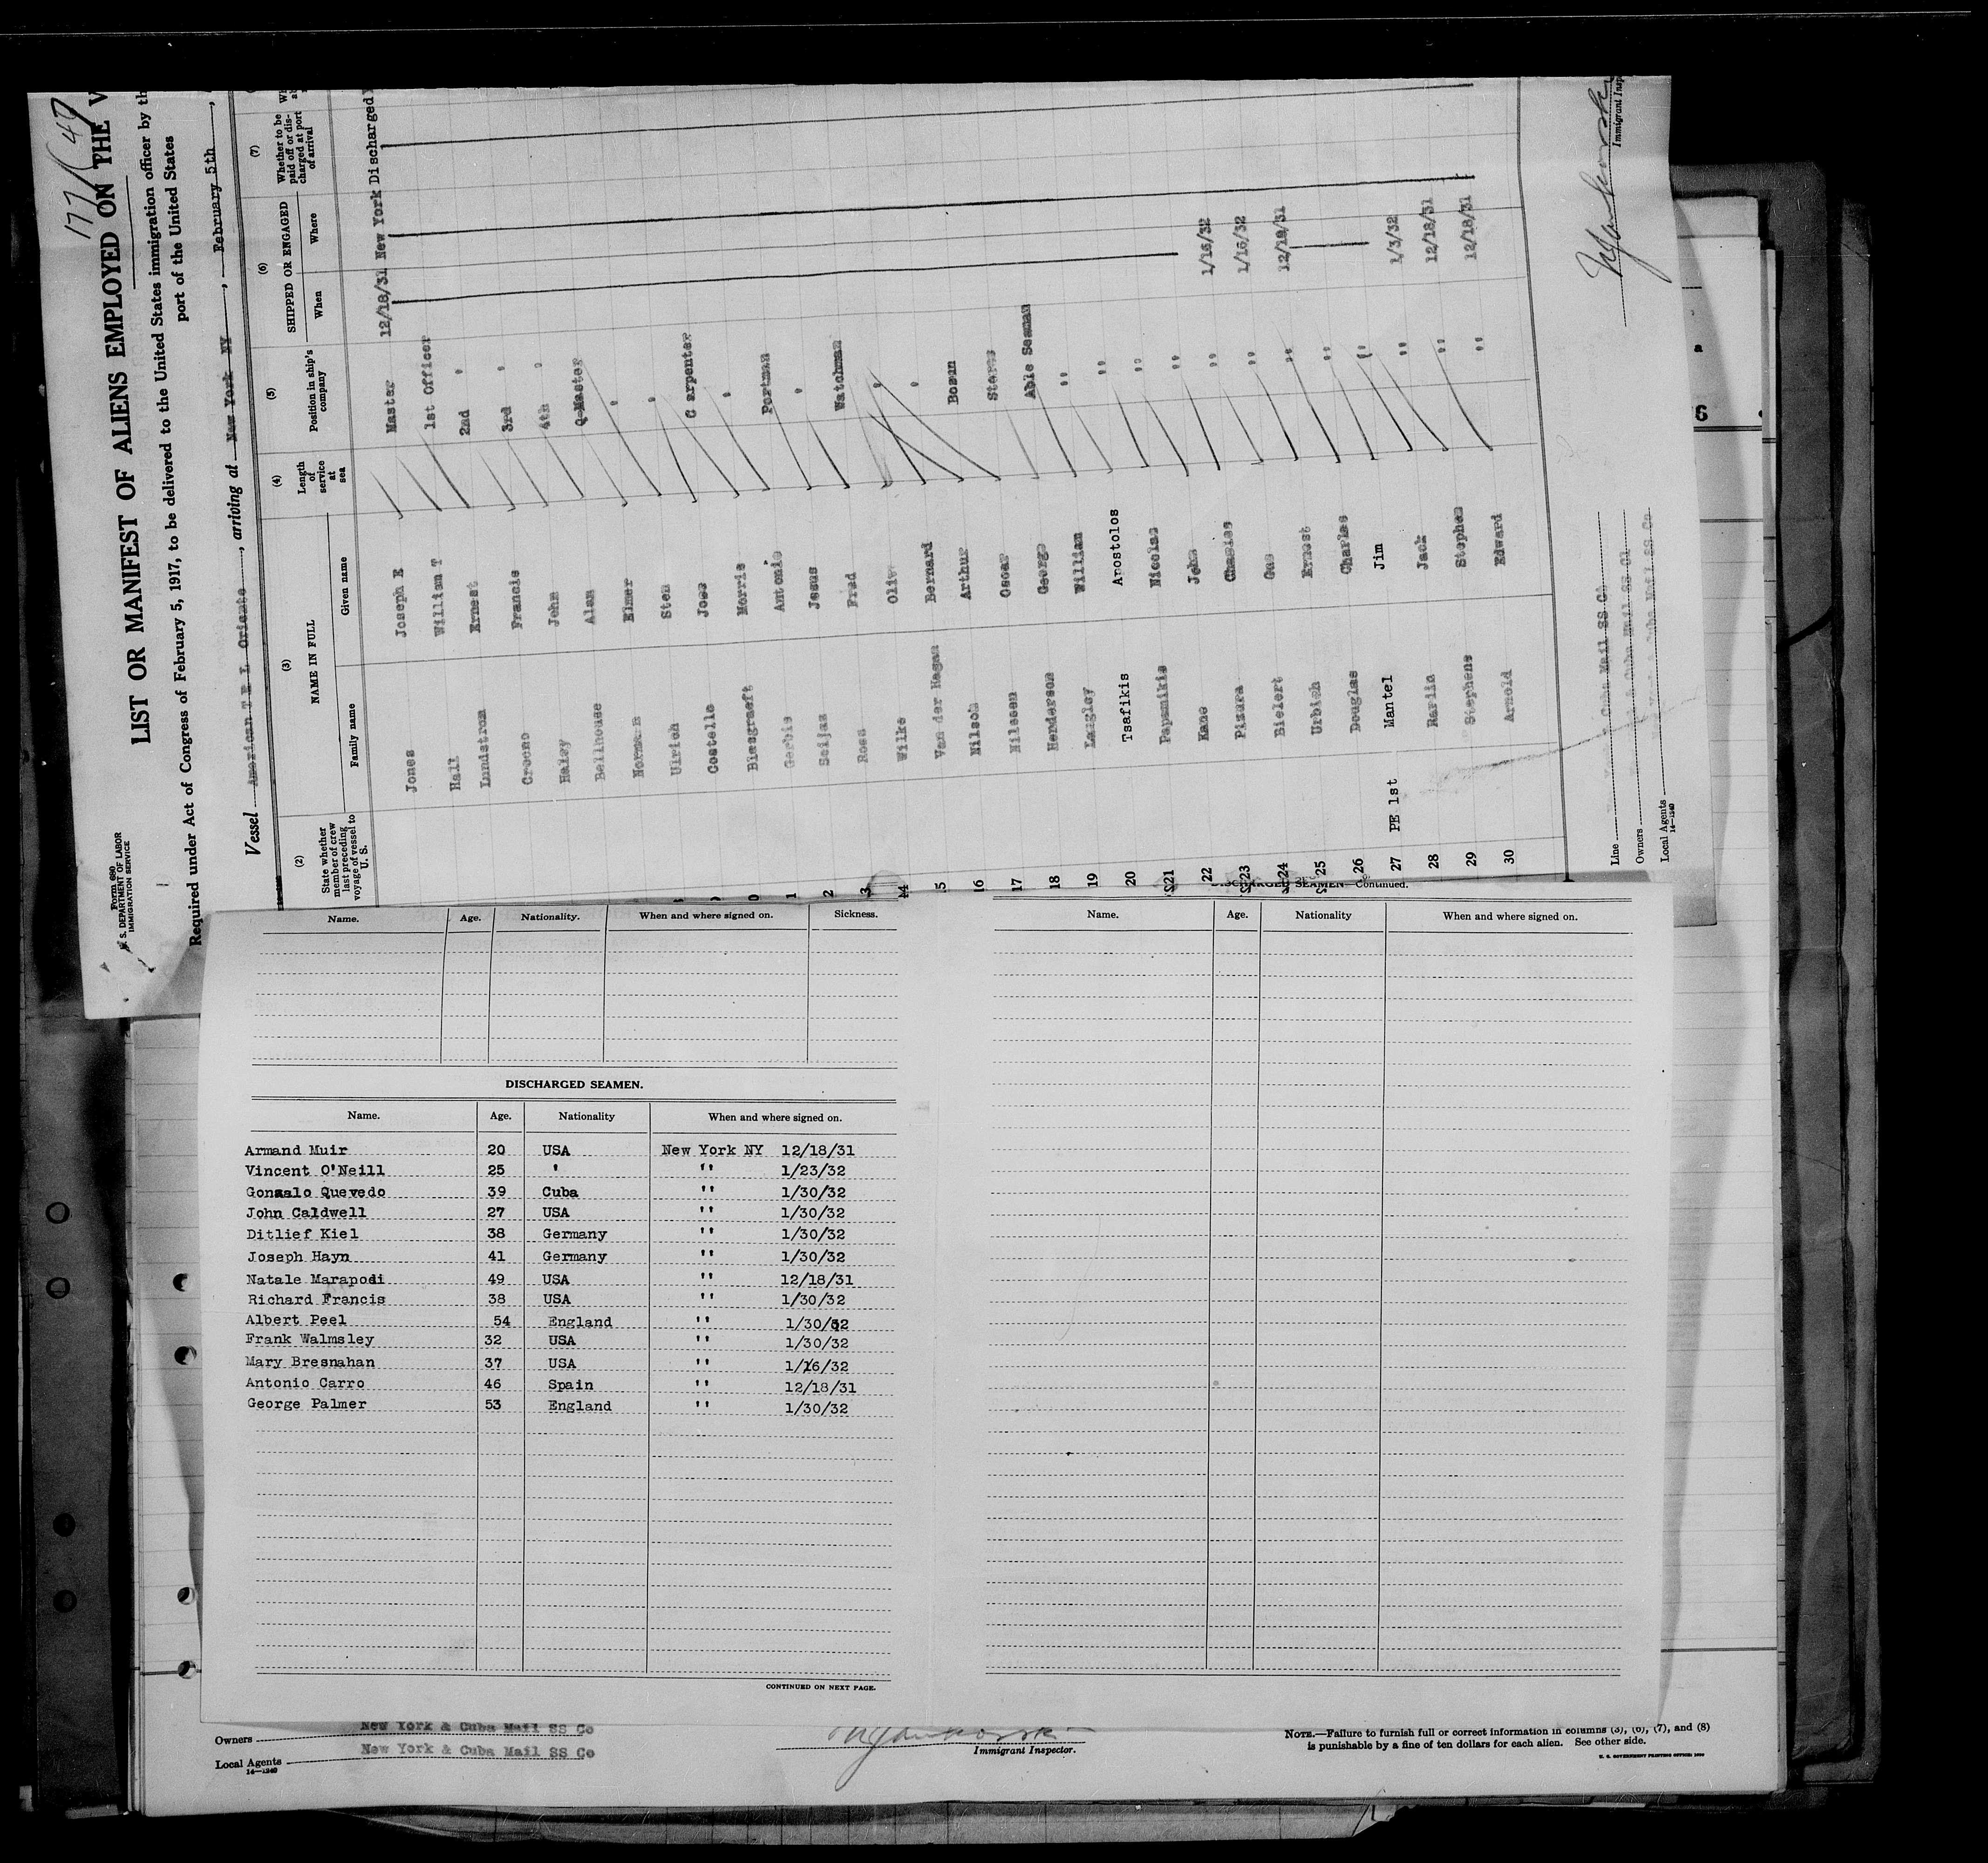 177/(47
Form 680
U. S. DEPARTMENT OF LABOR
IMMIGRATION SERVICE
LIST OR MANIFEST OF ALIENS EMPLOYED ON THE V
Required under Act of Congress of February 5, 1917, to be delivered to the United States immigration officer by th
port of the United States
Vessel American T E L Oriente, arriving at New York NY, February 5th,
(2) (3) (4) (5) (6) (7)
State whether member of crew last preceding voyage of vessel to U. S. NAME IN FULL Length of service at sea Position in ship's company SHIPPED OR ENGAGED Whether to be paid off or discharged at port of arrival
Family name Given name When Where
Jones Joseph E Master 12/18/31 New York Discharged
Hall William T 1st Officer
Lundstrom Ernest 2nd '
Francis 3rd '
Haley John 4th '
Bellhouse Alan Q-Master
Normann Elmer '
Ulrich Sten '
Costello Jose C arpenter
0 Morris '
1 Antonio Portman
2 Seijas Jesus '
3 Rosa Fred Watchman
14 Wilke '
15 Van der Hagen Bernard '
16 Nilson Arthur Bosun
17 Nilssen Oscar
18 Henderson George Able Seaman
19 Langley William ''
20 Tsafikis Apostolos ''
21 Papamikis Nicolas ''
22 Kane John '' 1/16/32
23 Pizura Charles '' 1/16/32
24 Bielert Gus '' 12/18/31
25 Urbich Ernest ''
26 Douglas Charles ''
27 PE 1st Mantel Jim '' 1/3/32
28 Jack '' 12/18/31
29 Stephens Stephen '' 12/18/31
30 Arnold Edward
Line Cuba Mail SS Co
Owners Cuba Mail SS Co
Local Agents Cuba Mail SS Co
14—1240
Immigrant Insp
Name. Age. Nationality. When and where signed on. Sickness.
DISCHARGED SEAMEN.
Name. Age. Nationality When and where signed on.
Armand Muir 20 USA New York NY 12/18/31
Vincent O'Neill 25 ' '' 1/23/32
Gonzalo Quevedo 39 Cuba '' 1/30/32
John Caldwell 27 USA '' 1/30/32
Ditlief Kiel 38 Germany '' 1/30/32
Joseph Hayn 41 Germany '' 1/30/32
Natale Marapodi 49 USA '' 12/18/31
Richard Francis 38 USA '' 1/30/32
Albert Peel 54 England '' 1/30/32
Frank Walmsley 32 USA '' 1/30/32
Mary Bresnahan 37 USA '' 1/16/32
Antonio Carro 46 Spain '' 12/18/31
George Palmer 53 England '' 1/30/32
CONTINUED ON NEXT PAGE.
DISCHARGED SEAMEN—Continued.
Name. Age. Nationality When and where signed on.
Owners New York & Cuba Mail SS Co
Local Agents New York & Cuba Mail SS Co
14—1240
Immigrant Inspector.
NOTE.—Failure to furnish full or correct information in columns (3), (6), (7), and (8)
is punishable by a fine of ten dollars for each alien. See other side.
U. S. GOVERNMENT PRINTING OFFICE: 1930